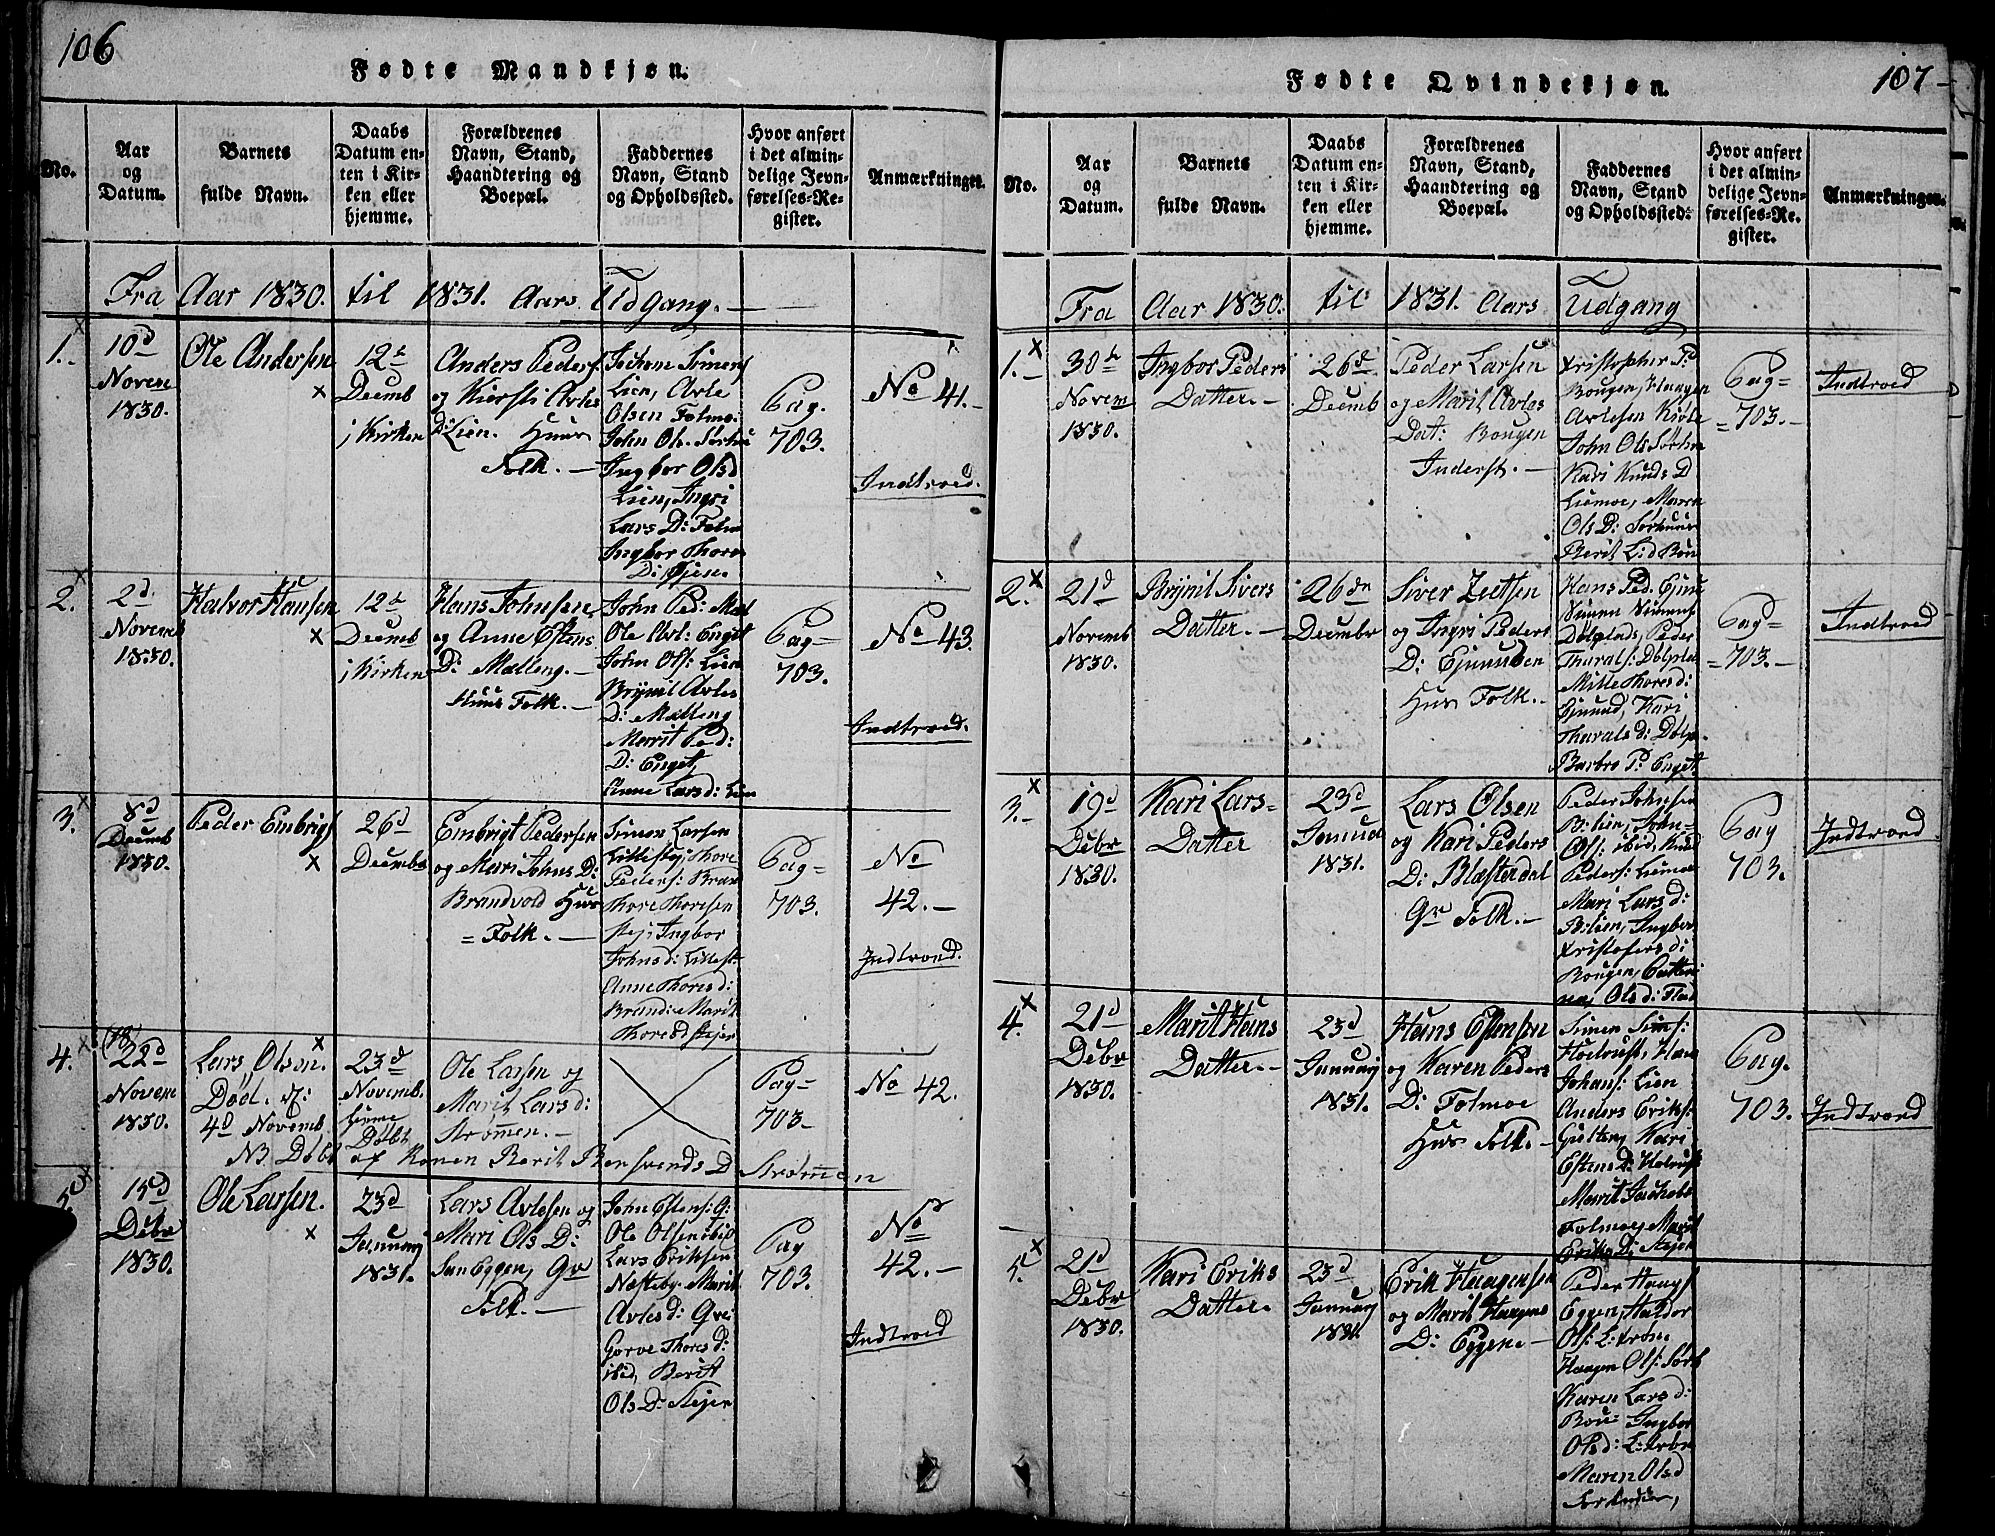 106
Fødte Mandkjøn.
No.
Aar
og
Datum.
Barnets
fulde Navn.
Daabs
Datum en-
ten i Kir-
ken eller
hjemme.
Forældrenes
Navn, Stand,
Haandtering og
Boepæl.
Faddernes
Navn, Stand
og Opholdssted.
Hvor anført
i det almin-
delige Jevn-
førelses-Re-
gister.
Anmærkninger.
Fra Aar 1830. til 1831. Aars Udgang.
1.
10d
Novem
1830.
Ole Andersen
12te
Decemb
i Kirken
Anders Peders
og Kiersti Arles
D: Lien. Huus
Folk.
Jochem Simens
Lien, Arle
Olsen Tolmo.
John Ols. Sørhu
Ingbor Olsd
Lien, Ingri
Lars D: Tolmo
Ingbor Thore
D: Øjen.
Pag.
703.
No 41.
Indtroed.
2.
2d
Novemb
1830.
Halvor Hansen
12te
Decemb
i Kirken
Hans Johnsen
og Anne Estens
D: Mælleng.
Huus Folk.
John Ped: Mæl
Ole Arl: Enget
John Ols: Lien
Brynil Arles
D: Mælleng
Marrit Ped:
D: Enget,
Anne Lars d: Lien
Pag
703.
No 43.
Indtroed.
3.
8d
Decemb
1830.
Peder Embrigs
26d
Decembr
Embrigt Pedersen
og Mari Johns D:
Brandvold Huus
Folk.
Simen Larsen
Lillestej Thore
Peders: Bran
Thore Thoresen
Stej: Ingbor
Johns d: Lillest
Anne Thores d:
Brand: Marit
Thores d Stejer
Pag
703.
No
42.
Indtroed.
4.
22d
Novem
1830.
Lars Olsen.
Død. d:
4d Novemb.
23d
Novemb.
hjeme
Døbt
Ole Larsen og
Marit Lars d:
Strømen.
Pag
703
No 42.
NB Døbt af Konen Berit Bersvends D Strømmen
5.
15d
Debr
1830.
Ole Larsen.
23d
Januarj
1831.
Lars Arlesen og
Mari Ols D:
San Eggen, Gr
Folk.
John Estens: G:
Ole Olsen ibid
Lars Eriksen
Næsteby Marit
Arles d: Grei
Gorve Thores d:
ibid, Berit
Ols D: Stejer
Pag
703.
No
42.
Indtroed
107
Fødte Qvindekjøn.
No.
Aar
og
Datum.
Barnets
fulde Navn.
Daabs
Datum en-
ten i Kir-
ken eller
hjemme.
Forældrenes
Navn, Stand,
Haandtering og
Boepæl.
Faddernes
Navn, Stand
og Opholdssted.
Hvor anført
i det almin-
delige Jevn-
førelses-Re-
gister.
Anmærkninger.
Fra Aar 1830. til 1831. Aars Udgang
1.
30te
Novem
1830.
Ingbor Peders
Datter.
26d
Decemb
Peder Larsen
og Marit Arles
Dat: Bougen
Inderst.
Kristopher P
Bougen, Haagen
Arlesen Kiøle
John Ols Sørhu
Kari Knuds D
Liemoe, Maren
Ols D: Sørhuus
Berit L: d Bou
Pag
703.
Indtroed
2.
21d
Novemb
1830.
Brynil Sivers
Datter.
26de
Decembr
Siver Zeetsen
og Ingri Peders
D: Ejnunden
Hus Folk.
Hans Ped. Ejnu
Simen Simens
Dølplads, Peder
Tharals: Dølplas
Mille Thores d:
Ejnund, Kari
Tharals d: Dølp
Barbro P: Enget
Pag
703.
Indtroed
3.
19d
Debr
1830.
Kari Lars
Datter
23d
Januar
1831.
Lars Olsen
og Kari Peders
D: Blæsterdal
Gr Folk.
Peder Johnsen
B: lien, John
Ols: ibid, Knud
Peders: Liemoe
Mari Lars d:
B: lien, Ingbor
Kristofers d:
Bougen, Catter
ina, Ols d: Flad
Pag
703.
Indtroed
4.
21d
Debr
1830.
Marit Hans
Datter.
23d
Januarj
1831.
Hans Estensen
og Karen Peders
D: Tolmoe
Hus Folk.
Simen Sims:
Hans
Johans: Lien
Anders Eriks:
Kari
Estens D:
Marrit Jachobs
Tolmoe, Marit
Eriks D: Stejen
Pag.
703.
Indtroed
5.
21d
Debr
1830.
Kari Eriks
Datter
23d
Januarj
1831.
Erik Haagensen
og Marit Haagens
D: Eggen
Peder Haags
Eggen, Haldor
Ols: L: trøn
Haagen Ols: Sørh
Karen Lars d:
Bou: Ingbor
Ols d: L: trøn
Maren Ols d